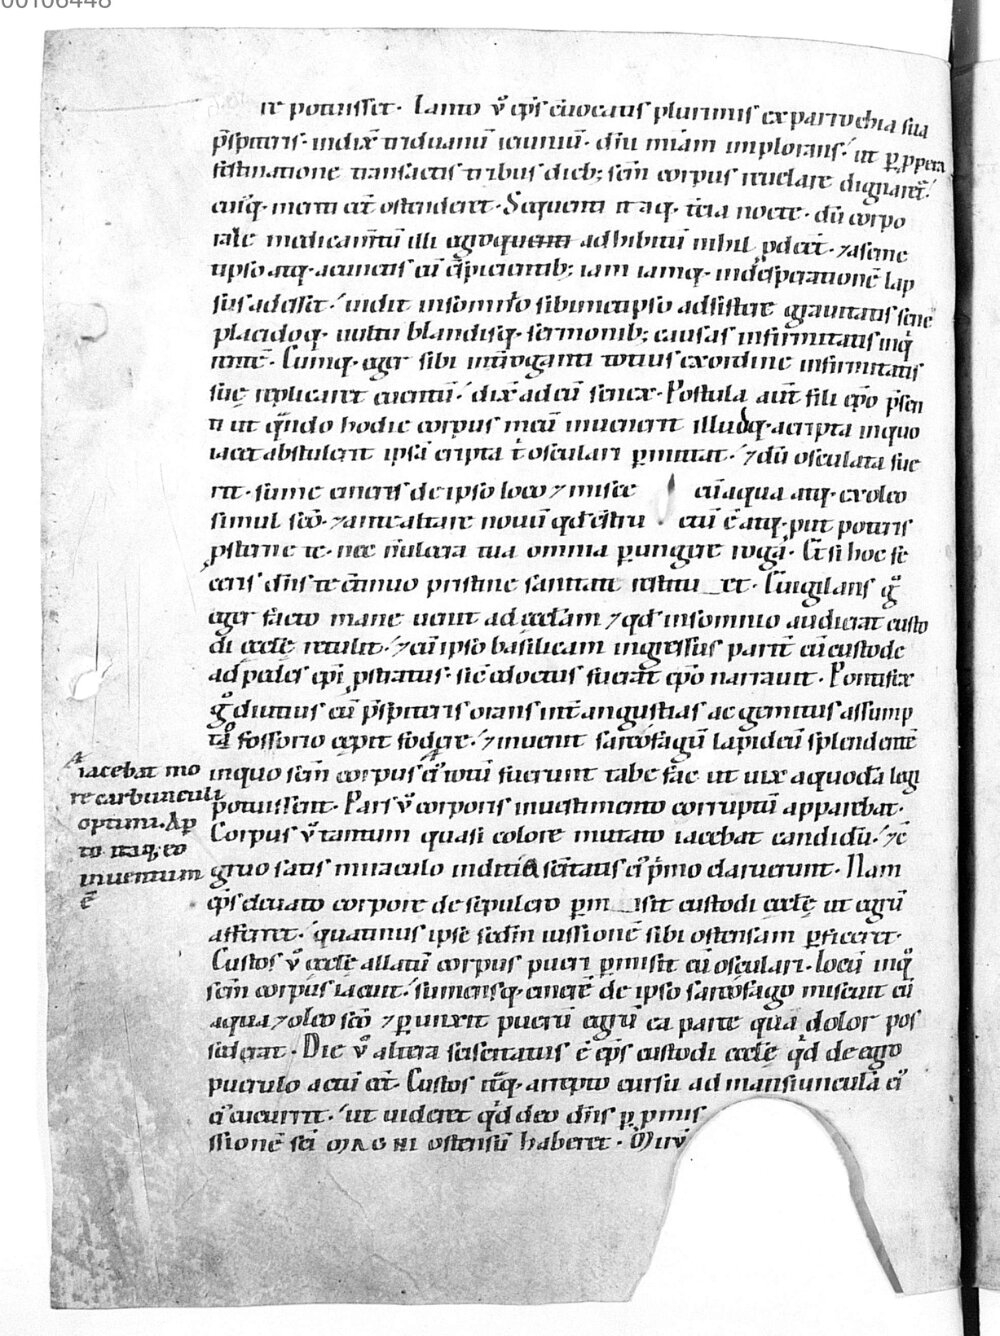 00106448
re potuisset. Tanto v̊ ep̄s euocatis plurimis ex parrochia sua
p̄sbiteris. indix̄ triduanū ieiuniū. dn̄i mīam implorans. ut ꝑ ꝓpera
festinatione transactis tribus dieb; scm̄ corpus reuelare dignaret̄
cuiꝗ. meriti eēt ostenderet. Sequenti itaꝗ. t̄cia nocte. dū corpo
rale medicam̄tū illi egroquenti adhibitū nihil ꝓdeēt. ⁊ a seme
tipso atꝗ. a cunctis eū c̄spicientib; iam iamꝗ. in desperationē lap
sus adesset. uidit in somnio sibimetipso adsistere grauitatis senē
placidoꝗ. uultu blandisꝗ. sermonib; causas infirmitatis inꝗ
rentē. Cumꝗ. eger sibi int̄roganti totius ex ordine infirmitatis
suę replicaret euentū. dix̄ ad eū senex. Postula aut̄ fili ep̄o p̄sen
ti ut q̄ndo hodie corpus meū inuenerit illudꝗ. a cripta in quo
iacet abstulerit ipsā criptā t̄ osculari ꝑmittat. ⁊ dū osculata fue
rit. sume cineris de ipso loco ⁊ misce cū aqua atꝗ. ex oleo
simul scō. ⁊ ante altare nouū qd̄ c̄stru ctū ē atꝗ. put poteris
ꝓsterne te. nec n̄ ulcera tua omnia ꝑungere roga. Et si hoc fe
ceris dn̄s te c̄tinuo pristine sanitati restitu et. Euigilans g̊
eger facto mane uenit ad ęccl̄am ⁊ qd̄ in somnio audierat custo
di ęccl̄ę retulit. ⁊ cū ipso basilicam ingressus parit̄ cū custode
ad pedes ep̄i ꝓstratus. sic̄ edoctus fuerat ep̄o narrauit. Pontifex
g̊ diutius cū p̄sbiteris orans int̄ angustias ac gemitus assump
to fossorio cepit fodere. ⁊ inuenit sarcofagū lapideū splendentē
in quo scm̄ corpus ei̊ totū fuerunt tabe fac ut uix a quodā legi
potuissent. Pars v̊ corporis inuestimento corruptū apparebat.
Corpus v̊ tantum quasi colore mutato iacebat candidū. ⁊ c̄
gruo satis miraculo inditia sc̄itatis ei̊ p̄mo claruerunt. Nam
ep̄s eleuato corpore de sepulcro ꝑm isit custodi ęccl̄ę ut egrū
afferret. quatinus ipse scdm̄ iussionē sibi ostensam ꝑficeret.
Custos v̊ ęccl̄ę allatū corpus pueri ꝑmisit eū osculari. locū in q̊
scm̄ corpus iacuit. sumensꝗ. cinerē de ipso sarcofago miscuit cū
aqua ⁊ oleo scō ⁊ ꝑunxit puerū egrū ea parte qua dolor pos
sederat. Die v̊ altera sciscitatus ē ep̄s custodi ęccl̄ę qd̄ de egro
puerulo actū eēt. Custos itaꝗ. arrepto cursu ad mansiunculā ei̊
c̄cucurrit. ut uideret qd̄ deo dn̄s ꝑ ꝓmis
ssionē scī MAGNI ostensū haberet.
iacebat mo
re carbunculi
optimi. Ap
to itaꝗ. eo
inuentum
ē